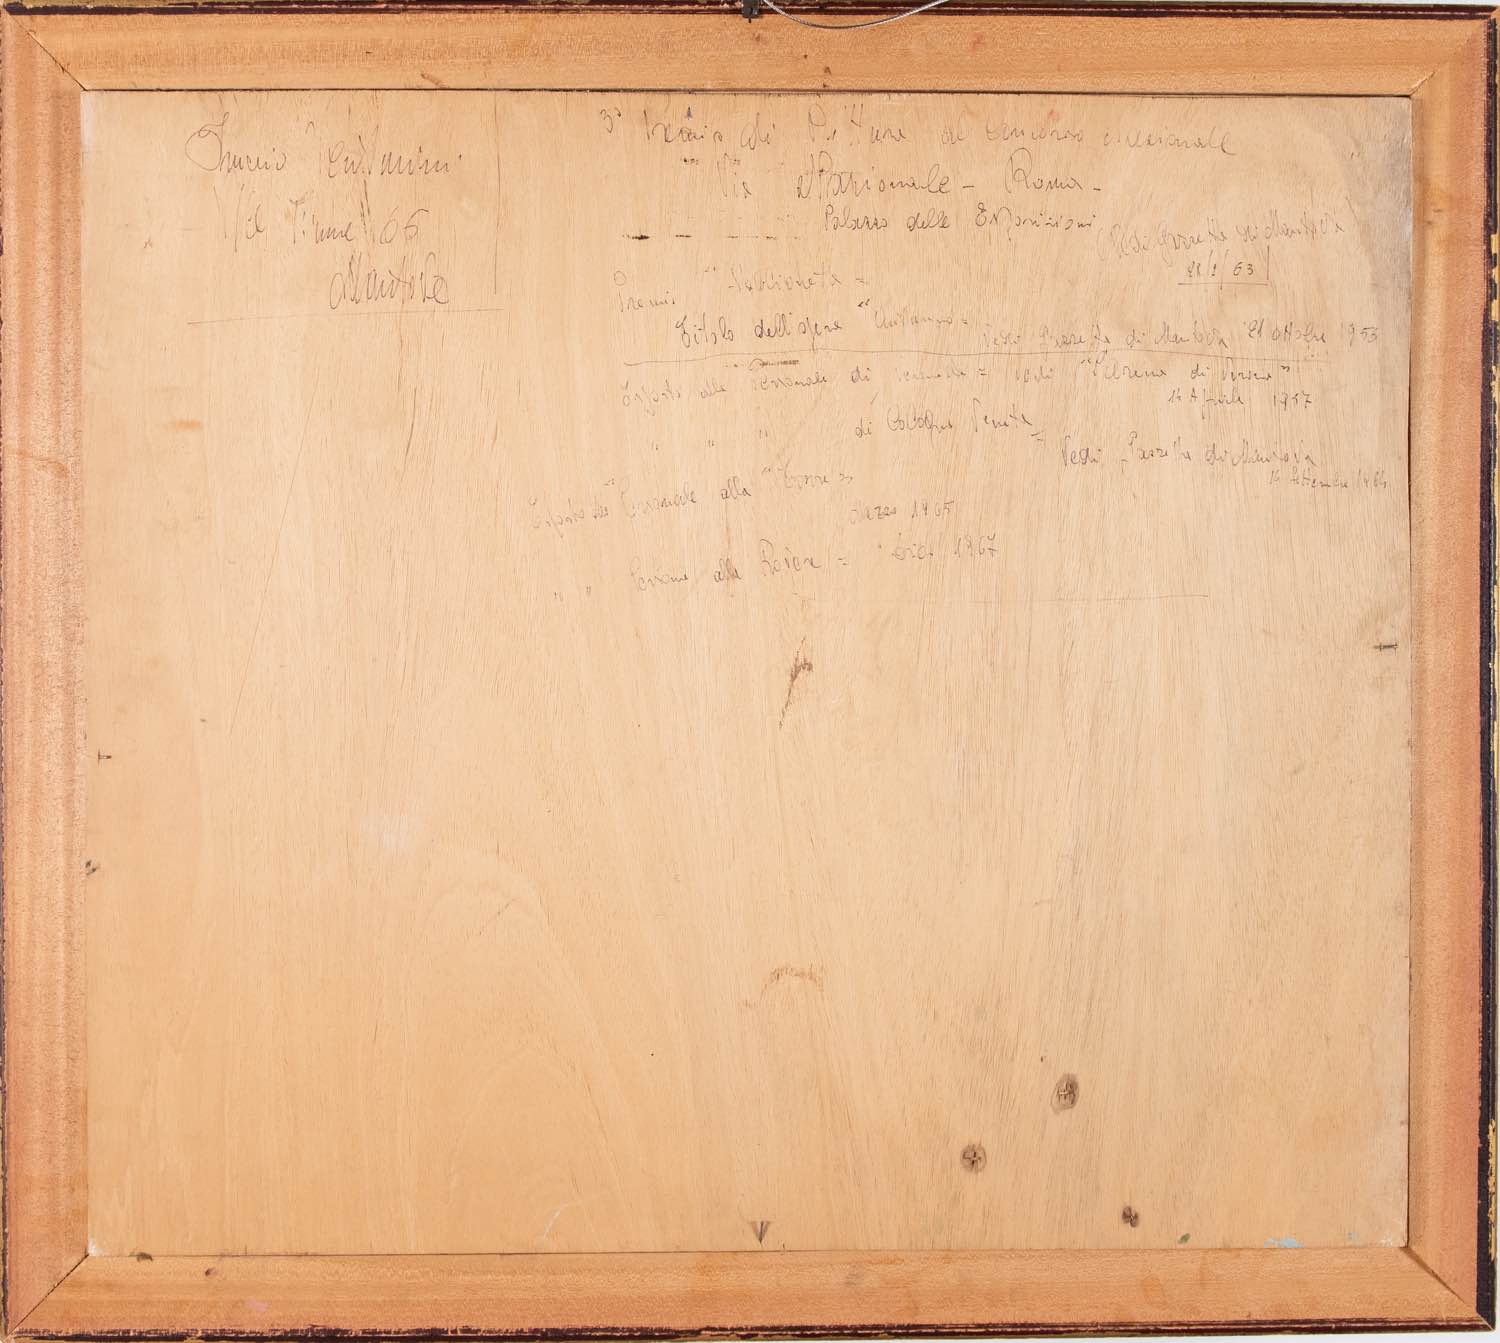 V/le Fiume 65
Mantova
3° Premio di Pittura al concorso nazionale
Via Nazionale - Roma -
Palazzo delle Esposizioni
(Vedi Gazzetta di Mantova
22/1/63
Premio "Sabbioneta =
Titolo dell'opera "Autunno = Vedi Gazzetta di Mantova 21 ottobre 1953
Esposto alla Personale di = vedi "L'Arena di Verona"
14 Aprile 1957
" " " di Cologna Veneta =
Vedi Gazzetta di Mantova
14 Settembre 1964
Esposto Personale alla
Marzo 1965
" " Personale alla Rovere = 1967